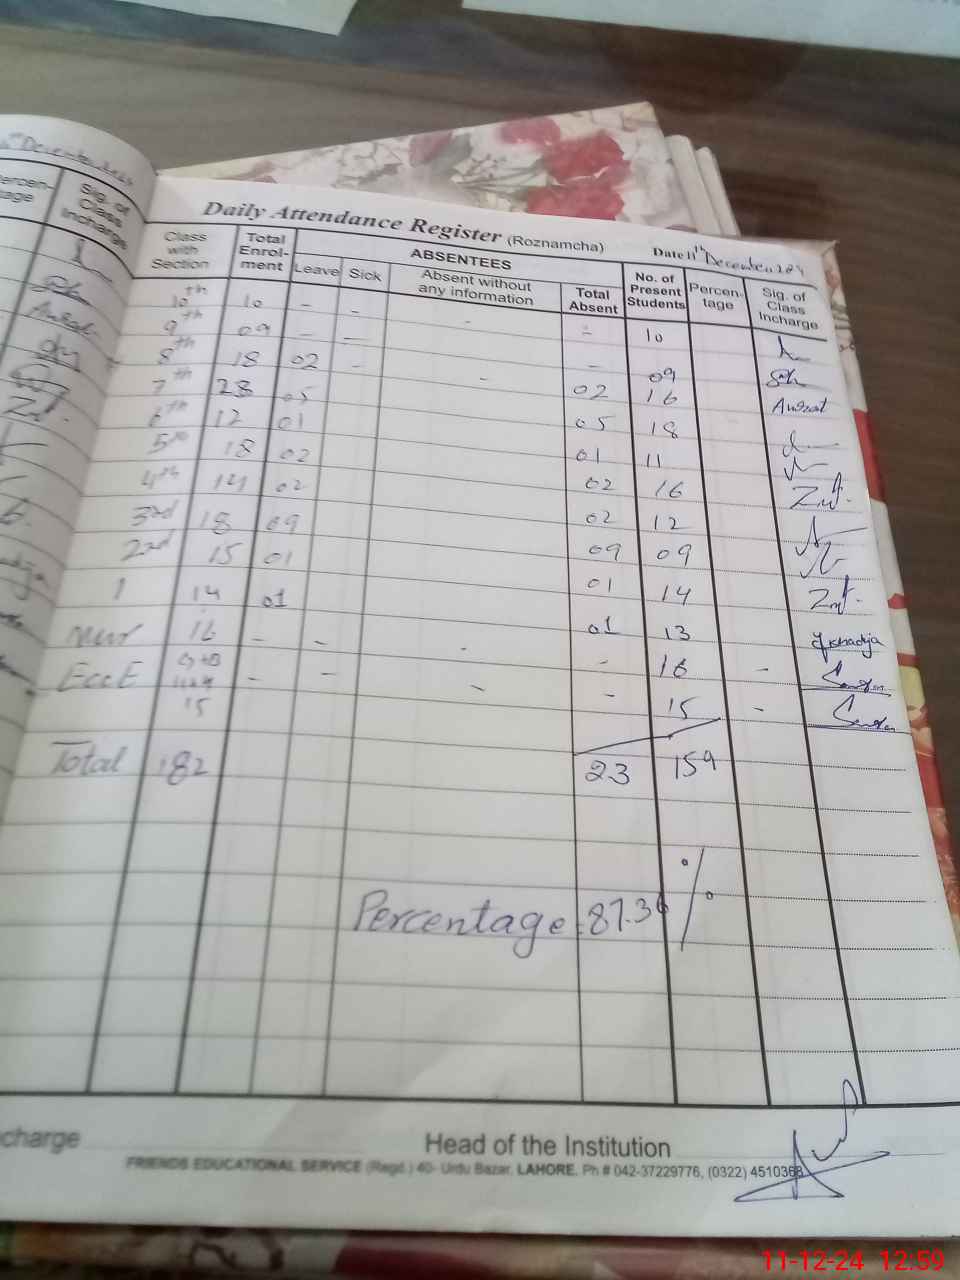 Daily Attendance Register (Roznamcha) Date 11th December 2024
Class with Section Total Enrol-ment ABSENTEES No. of Present Students Percen-tage Sig. of Class Incharge
Leave Sick Absent without any information Total Absent
10th 10 - - - - 10
9th 09 - - - - 09
8th 18 02 - 02 16
7th 28 05 05 18
6th 12 01 01 11
5th 18 02 02 16
4th 14 02 02 12
3rd 18 09 09 09
2nd 15 01 01 14
1 14 01 01 13 Khadija
Nur 16 - - - - 16 -
EccE 15 - - - - 15 -
Total 182 23 159
Percentage = 87.36 %
Head of the Institution
FRIENDS EDUCATIONAL SERVICE (Regd.) 40- Urdu Bazar, LAHORE. Ph # 042-37229776, (0322) 4510368
Sig. of Class Incharge
charge
11-12-24 12:59